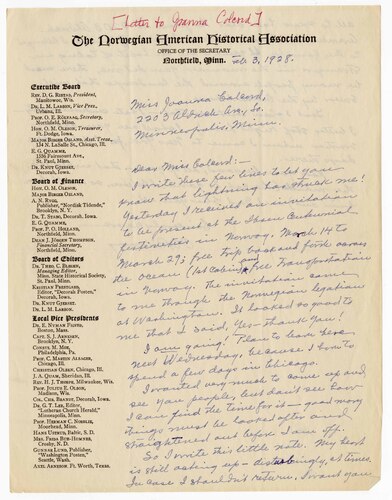 [Letter to Joanna Colcord]
The Norwegian American Historical Association
OFFICE OF THE SECRETARY
Northfield, Minn. Feb. 3, 1928.
Executive Board
REV. D. G. RISTAD, President,
Manitowoc, Wis.
DR. L. M. LARSON, Vice Pres.,
Urbana, Ill.
PROF. O. E. RÖLVAAG, Secretary,
Northfield, Minn.
HON. O. M. OLESON, Treasurer,
Ft. Dodge, Iowa.
MAJOR BIRGER OSLAND, Asst. Treas.,
134 N. LaSalle St., Chicago, Ill.
E. G. QUAMME,
1356 Fairmount Ave.,
St. Paul, Minn.
DR. KNUT GJERSET,
Decorah, Iowa.
Board of Finance
HON. O. M. OLESON,
MAJOR BIRGER OSLAND,
A. N. RYGG,
Publisher, "Nordisk Tidende,"
Brooklyn, N. Y.
DR. T. STABO, Decorah, Iowa.
E. G. QUAMME,
PROF. P. O. HOLLAND,
Northfield, Minn.
DEAN J. JÖRGEN THOMPSON,
Financial Secretary,
Northfield, Minn.
Board of Editors
DR. THEO. C. BLEGEN,
Managing Editor,
Minn. State Historical Society,
St. Paul, Minn.
KRISTIAN PRESTGARD,
Editor, "Decorah Posten,"
Decorah, Iowa.
DR. KNUT GJERSET.
DR. L. M. LARSON.
Local Vice Presidents
DR. E. NYMAN FIGVED,
Boston, Mass.
CAPT. S. J. ARNESEN,
Brooklyn, N. Y.
CONSUL M. MOE,
Philadelphia, Pa.
PROF. C. MARIUS ALSAGER,
Chicago, Ill.
CHRISTIAN OLSEN, Chicago, Ill.
J. A. QUAM, Sheridan, Ill.
REV. H. J. THORPE, Milwaukee, Wis.
PROF. JULIUS E. OLSON,
Madison, Wis.
COL. CHR. BRANDT, Decorah, Iowa.
DR. G. T. LEE, Editor,
"Lutheran Church Herald,"
Minneapolis, Minn.
PROF. HERMAN C. NORDLIE,
Moorhead, Minn.
HANS USTRUD, Baltic, S. D.
MRS. FRIDA BUE-HOMNES,
Crosby, N. D.
GUNNAR LUND, Publisher,
"Washington Posten,"
Seattle, Wash.
AXEL ARNESON, Ft. Worth, Texas.
Miss Joanna Colcord,
2203 Aldrich Ave., So.
Minneapolis, Minn.
Dear Miss Colcord:—
I write these few lines to let you
know that lightning has struck me!
Yesterday I received an invitation
to be present at the Ibsen Centennial
festivities in Norway, March 14 to
March 29; free trip back and forth across
the ocean (1st Cabin) & free transportation
in Norway. The invitation came
to me through the Norwegian legation
at Washington. It looked so good to
me that I said, Yes—thank you!
I am going. Plan to leave here
next Wednesday, because I have to
spend a few days in Chicago.
I wanted very much to come up and
see you people, but don't see how
I can find the time for it—a good many
things must be looked after and
straightened out before I am off.
So I write this little note. My heart
is still acting up—disturbingly, at times.
In case I should not return, I want you